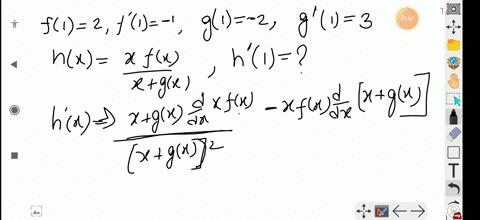 f(1)=2, f'(1)=-1, g(1)=-2, g'(1)=3
h(x)= x f(x) / x+g(x) , h'(1)=?
h'(x)=> x+g(x) d/dx x f(x) - x f(x) d/dx [x+g(x)] / [x+g(x)]²